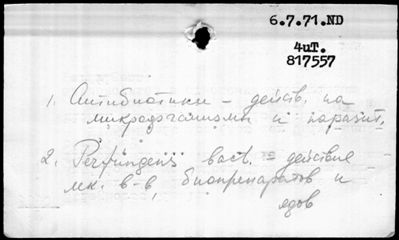 6.7.71.ND
4uT.
817557
1. Антибиотики – действ. на
микроорганизмы и паразит.
2. Perfringens bact. – действие
лк. в-в, биопрепаратов и
ядов